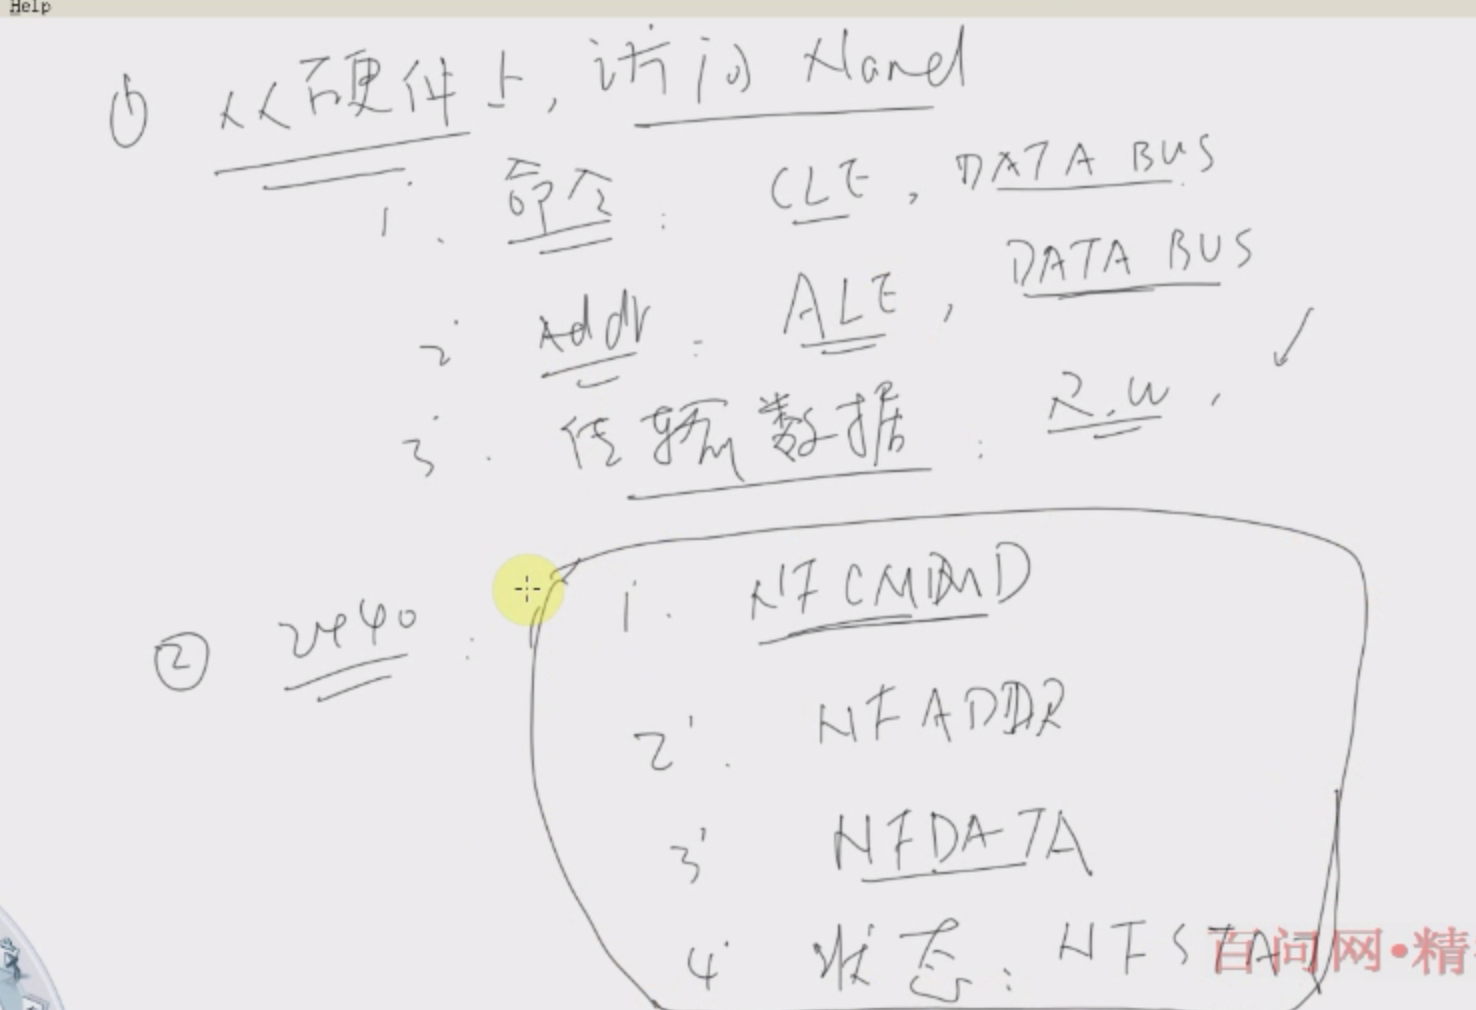 Help
① 从硬件上，访问 Nand
1. 命令: CLE, DATA BUS
2' Addr: ALE, DATA BUS
3'. 传输数据: R.W,
② 2440: 1. NFCMMD
2'. NFADDR
3' NFDATA
4' 状态: NFSTAT
百问网·精